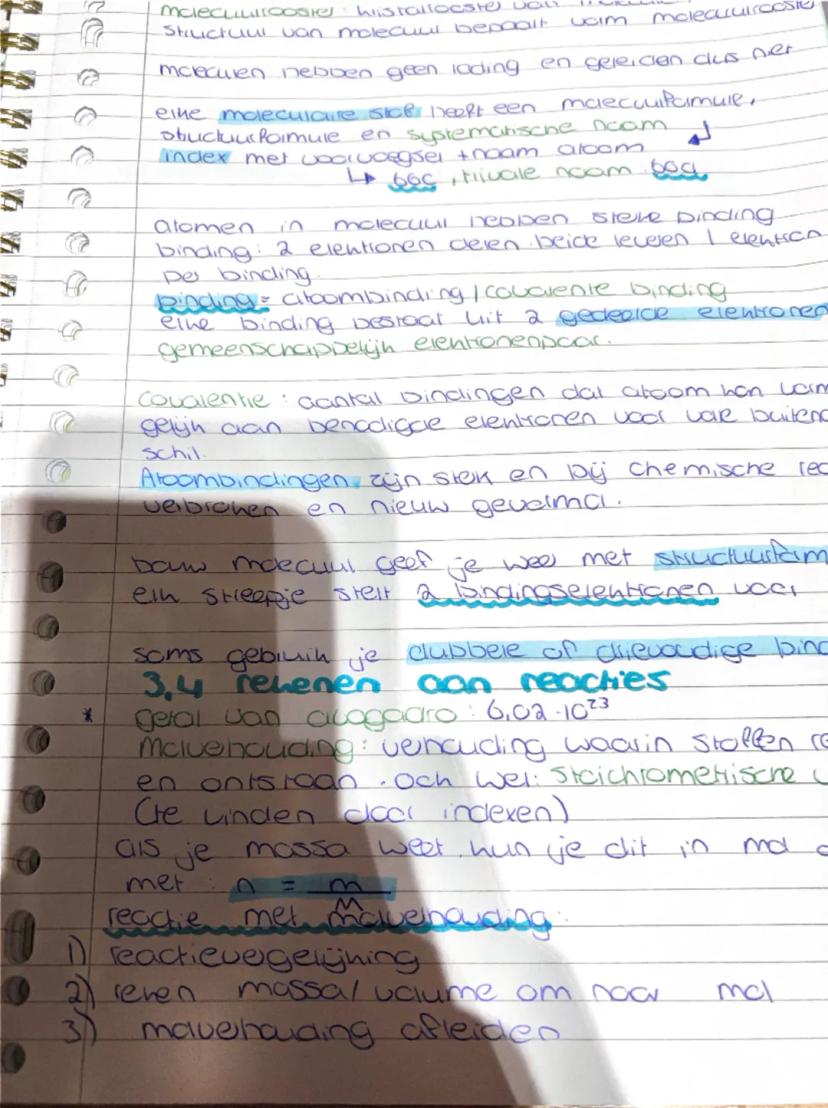 molecuulrooster: kristalrooster van
structuur van molecuul bepaalt vorm molecuulrooster
moleculen hebben geen lading en geleiden dus niet
elke moleculaire stof heeft een molecuulformule,
structuurformule en systematische naam
index met voorvoegsel + naam atoom
↳ 66c, triviale naam 66a
atomen in molecuul hebben sterke binding
binding: 2 elektronen delen beide leveren 1 elektron
per binding.
binding = atoombinding / covalente binding
elke binding bestaat uit 2 gedeelde elektronen
gemeenschappelijk elektronenpaar.
covalentie: aantal bindingen dat atoom kan
gelijk aan benodigde elektronen voor volle
schil.
Atoombindingen zijn sterk en bij chemische
verbroken en nieuw gevormd.
bouw molecuul geef je weer met
elk streepje stelt 2 bindingselektronen voor
soms gebruik je dubbele of drievoudige
3.4 rekenen aan reacties
* getal van avogadro: 6,02·10²³
Molverhouding: verhouding waarin stoffen
en ontstaan. Ook wel: stoichiometrische
(te vinden door indexen)
als je massa weet kun je dit in mol
met: n = m
M
reactie met molverhouding:
1) reactievergelijking
2) reken massa/volume om naar mol
3) molverhouding afleiden